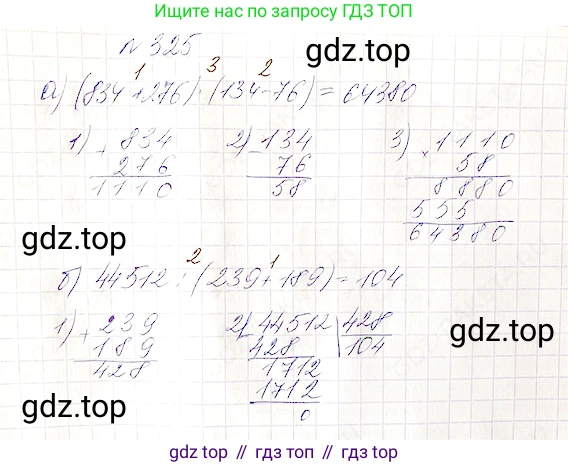 Ищите нас по запросу ГДЗ ТОП
№ 325
gdz.top
1 3 2
а) (834+276)·(134-76)=64380
1) + 834 2) - 134 3) × 1110
276 76 58
1110 58 8880
555
64380
gdz.top
2 1
б) 44512 : (239+189)=104
1) + 239 2) - 44512 | 428
189 428 104
428 1712
1712
0
gdz.top
gdz.top
gdz.top // гдз топ // гдз.топ